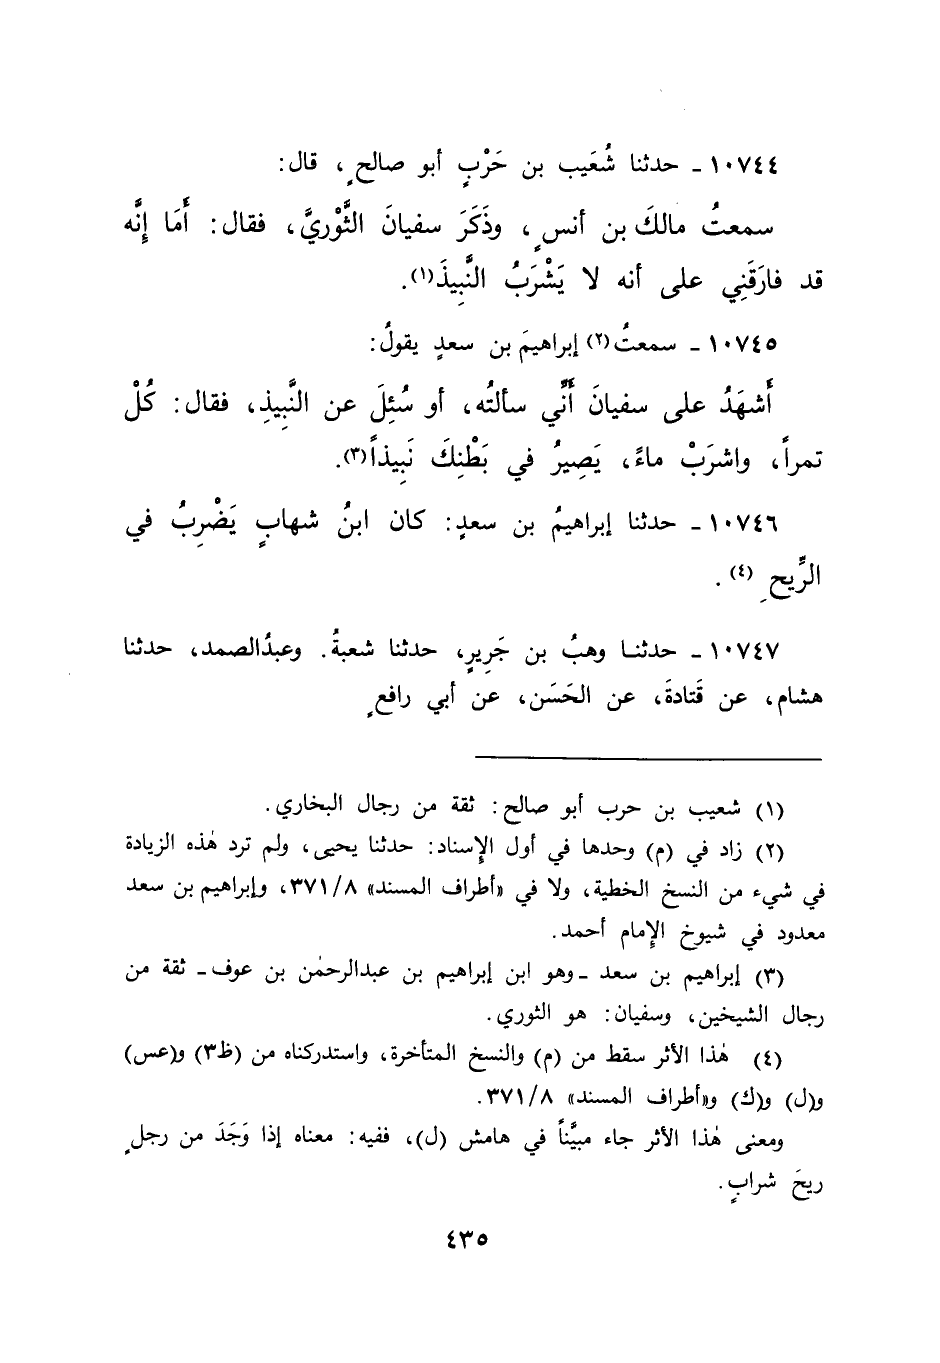 ١٠٧٤٤ ـ حدثنا شُعَيب بن حَرْبٍ أبو صالحٍ، قال:
سمعتُ مالكَ بن أنسٍ، وذَكَرَ سفيانَ الثَّوْريَّ، فقال: أَمَا إنَّه
قد فارَقَنِي على أنه لا يَشْرَبُ النَّبِيذَ(١).
١٠٧٤٥ ـ سمعتُ(٢) إبراهيمَ بن سعدٍ يقولُ:
أَشهَدُ على سفيانَ أَنِّي سألتُه، أو سُئِلَ عن النَّبِيذِ، فقال: كُلْ
تمراً، واشرَبْ ماءً، يَصِيرُ في بَطْنِكَ نَبِيذاً(٣).
١٠٧٤٦ ـ حدثنا إبراهيمُ بن سعدٍ: كان ابنُ شهابٍ يَضْرِبُ في
الرِّيحِ(٤).
١٠٧٤٧ ـ حدثنا وهبُ بن جَرِيرٍ، حدثنا شعبةُ. وعبدُالصمد، حدثنا
هشام، عن قَتادةَ، عن الحَسَن، عن أبي رافعٍ
(١) شعيب بن حرب أبو صالح: ثقة من رجال البخاري.
(٢) زاد في (م) وحدها في أول الإسناد: حدثنا يحيى، ولم ترد هٰذه الزيادة
في شيء من النسخ الخطية، ولا في «أطراف المسند» ٣٧١/٨، وإبراهيم بن سعد
معدود في شيوخ الإمام أحمد.
(٣) إبراهيم بن سعد ـ وهو ابن إبراهيم بن عبدالرحمٰن بن عوف ـ ثقة من
رجال الشيخين، وسفيان: هو الثوري.
(٤) هٰذا الأثر سقط من (م) والنسخ المتأخرة، واستدركناه من (ظ٣) و(عس)
و(ل) و(ك) و«أطراف المسند» ٣٧١/٨.
ومعنى هٰذا الأثر جاء مبيَّناً في هامش (ل)، ففيه: معناه إذا وَجَدَ من رجلٍ
ريحَ شرابٍ.
٤٣٥